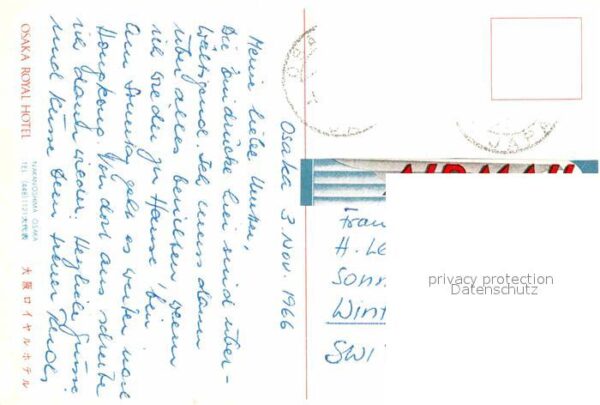 Osaka 3. Nov. 1966
Meine liebe Mutter,
Die Eindrücke hier sind über-
wältigend. Ich muss dann
über alles berichten wenn
ich wieder zu Hause bin
Am Sonntag geht es weiter nach
Hongkong. Von dort aus schreibe
ich dann wieder. Herzliche Grüsse
und Küsse Dein
OSAKA ROYAL HOTEL
NAKANOSHIMA OSAKA
TEL (448) 1121 大代表
大阪ロイヤルホテル
AIR MAIL
Frau
H. Le
Sonn
Wint
SWI
privacy protection
Datenschutz